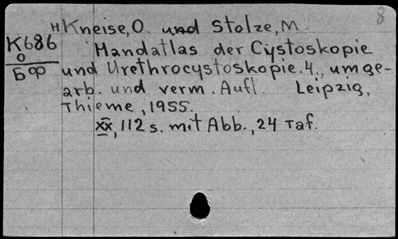 8
н Kneise, O. und Stolze, M.
K686
о
БФ
Handatlas der Cystoskopie
und Urethrocystoskopie. 4., umge-
arb. und verm. Aufl. Leipzig,
Thieme, 1955.
XX, 112 s. mit Abb., 24 Taf.